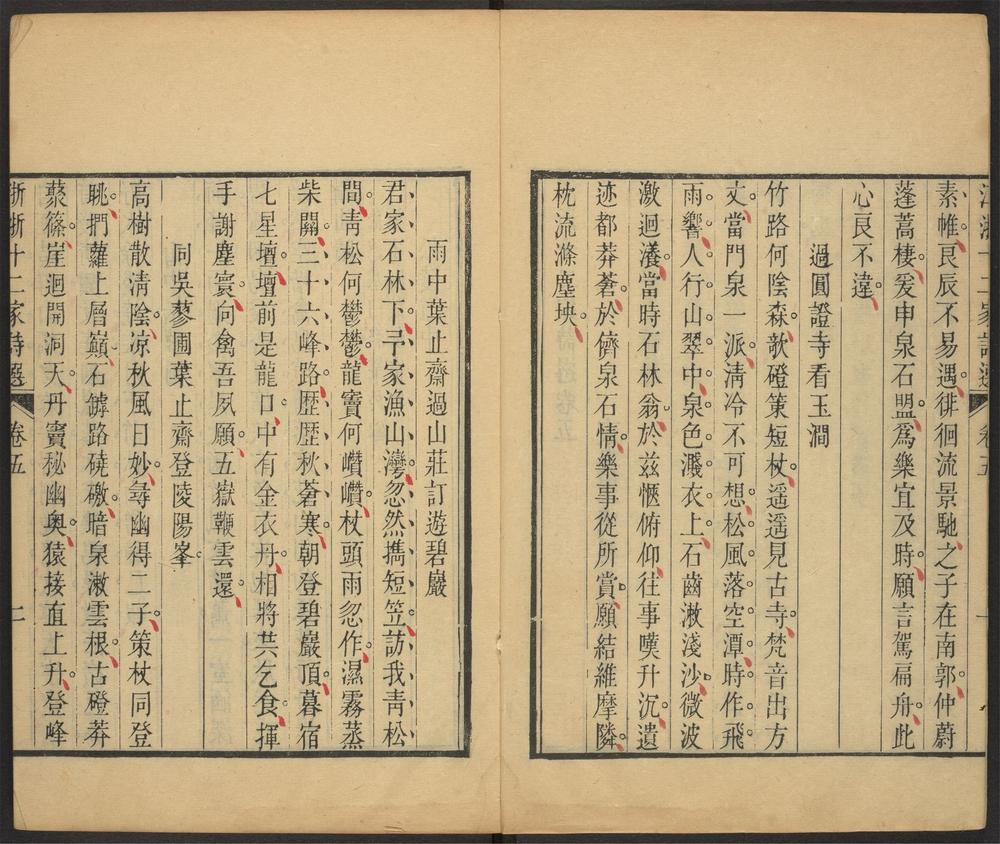 素帷良辰不易遇徘徊流景馳之子在南郭仲蔚
蓬蒿棲爰申泉石盟為樂宜及時願言駕扁舟此
心良不違
過圓證寺看玉澗
竹路何陰森欹磴策短杖遥遥見古寺梵音出方
丈當門泉一派清冷不可想松風落空潭時作飛
雨響人行山翠中泉色濺衣上石齒漱淺沙微波
激迴瀁當時石林翁於兹愜俯仰往事嘆升沉遺
迹都莽蒼於儕泉石情樂事從所賞願結維摩隣
枕流滌塵坱
雨中葉止齋過山莊訂遊碧巖
君家石林下予家漁山灣忽然攜短笠訪我青松
間青松何鬱鬱龍竇何巑巑杖頭雨忽作濕霧蒸
柴關三十六峰路歷歷秋蒼寒朝登碧巖頂暮宿
七星壇壇前是龍口中有金衣丹相將共乞食揮
手謝塵寰向禽吾夙願五嶽鞭雲還
同吳蓼圃葉止齋登陵陽峯
高樹散清陰凉秋風日妙尋幽得二子策杖同登
眺捫蘿上層巔石罅路磽礉暗泉漱雲根古磴莽
藂篠崖迴開洞天丹竇秘幽奥猿接直上升登峰
浙十二家詩選 卷五